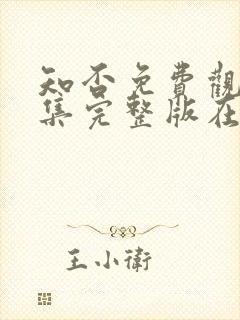 知否免費觀
集完整版在
王小衛